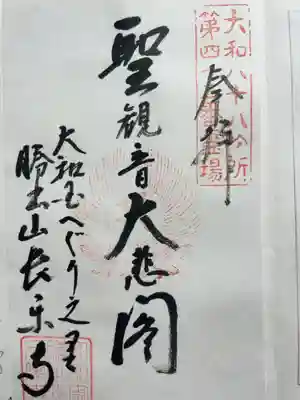 奉拝
聖観音大悲阁
大和へぐり之里
勝山長樂寺
大和八十八ヶ所
第四
霊場